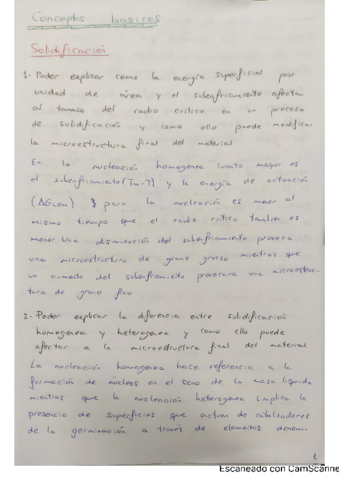 Conceptos basicos
Solidificación
1- Poder explicar como la energía superficial por
unidad de area y el subenfriamiento afecta
al tamaño del radio critico en un proceso
de solidificación y como ello puede modificar
la microestructura final del material
En la nucleación homogenea cuanto mayor es
el subenfriamiento (Tm-T) y la energía de activación
(ΔGhom) para la nucleación es menor al
mismo tiempo que el radio critico tambien es
menor. Una disminución del subenfriamiento provoca
una microestructura de grano grueso mientras que
un aumento del subenfriamiento provocara una microestruc-
tura de grano fino
2- Poder explicar la diferencia entre solidificación
homogenea y heterogenea y como ello puede
afectar a la microestructura final del material
La nucleación homogenea hace referencia a la
formación de nucleos en el seno de la masa liquida
mientras que la nucleación heterogenea implica la
presencia de superficies que actuan de catalizadores
de la germinación a través de elementos denomi-
1
Escaneado con CamScanne